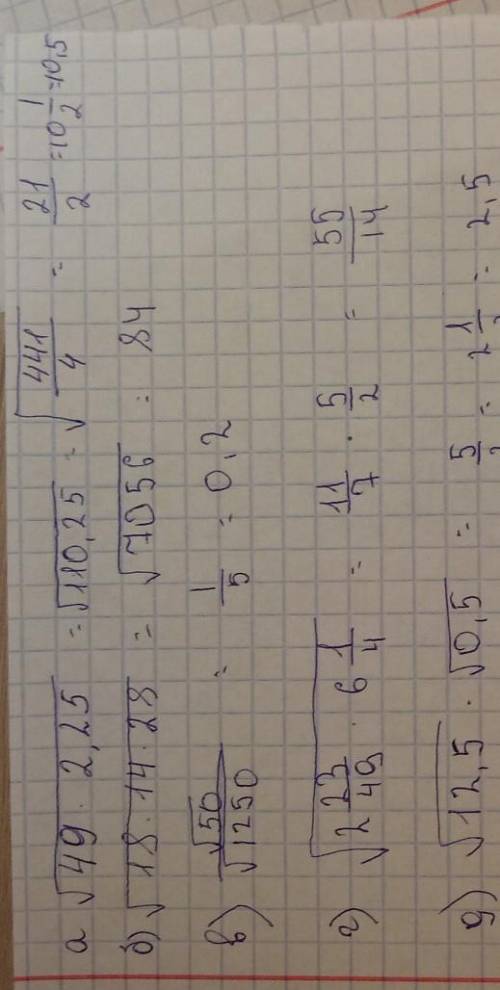 а √49 · 2,25 = √110,25 = √441/4 = 21/2 = 10 1/2 = 10,5
б) √18 · 14 · 28 = √7056 = 84
в) √50/√1250 = 1/5 = 0,2
г) √2 23/49 · 6 1/4 = 11/7 · 5/2 = 55/14
д) √12,5 · √0,5 = 5/2 = 2 1/2 = 2,5